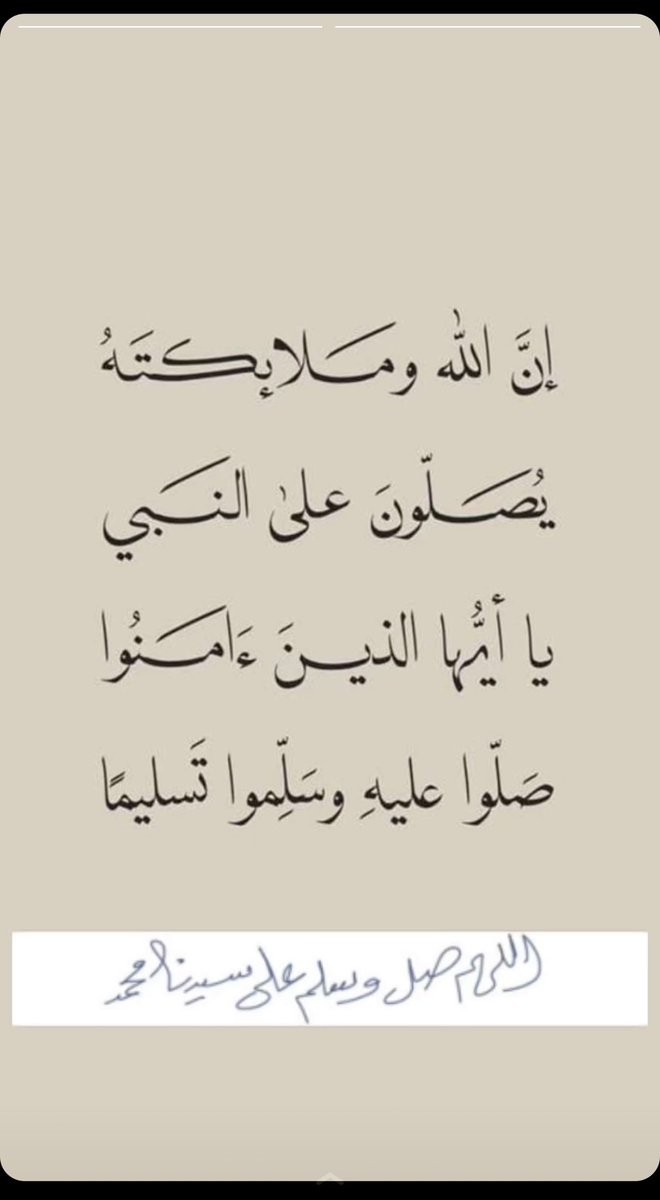 إنَّ الله ومَلائكتَهُ
يُصَلّونَ علىٰ النَبي
يا أيُّها الذينَ ءَامَنُوا
صَلّوا عليهِ وسَلِّموا تَسليمًا
اللهم صل وسلم على سيدنا محمد